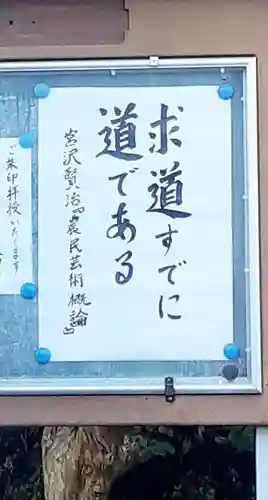 求道すでに
道である
宮沢賢治『農民芸術概論』
ご朱印拝授いたします